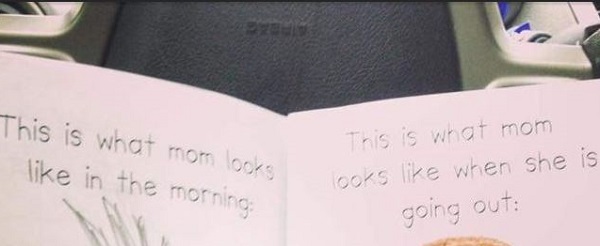 AIRBAG
This is what mom looks
like in the morning:
This is what mom
looks like when she is
going out: